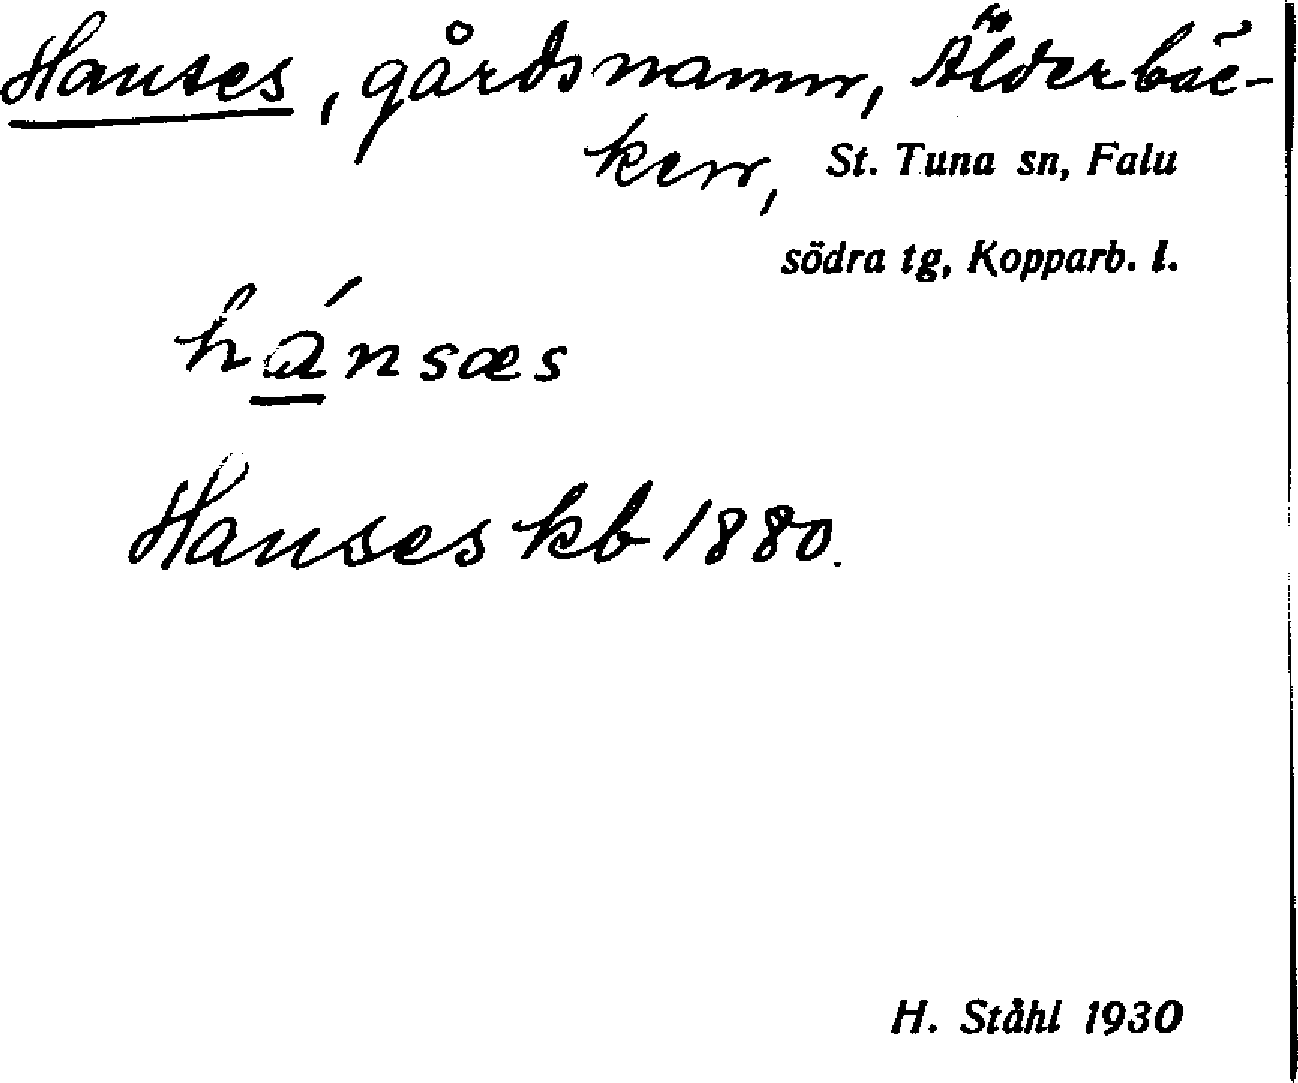 Hanses, gårdsnamn, Älderbäc-
ken, St. Tuna sn, Falu
södra tg, Kopparb. l.
hánsæs
Hanses kb 1880.
H. Ståhl 1930